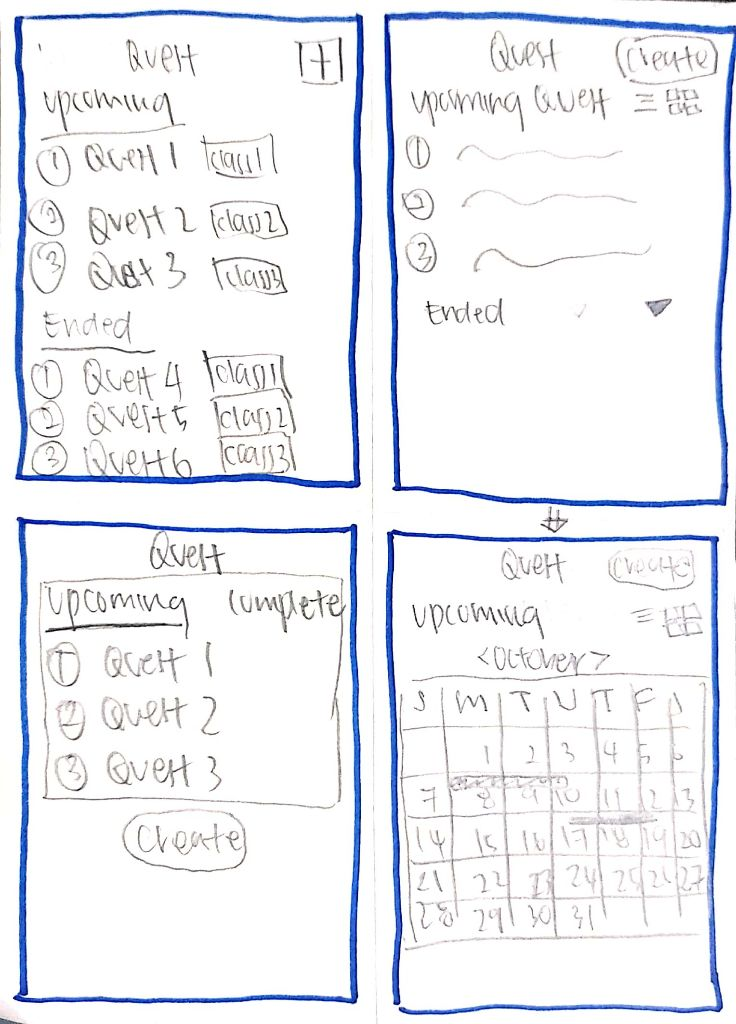 Quest +
Upcoming
1 Quest 1 class1
2 Quest 2 class2
3 Quest 3 class3
Ended
1 Quest 4 class1
2 Quest 5 class2
3 Quest 6 class3
Quest Create
Upcoming Quest
1
2
3
Ended
Quest
Upcoming Complete
1 Quest 1
2 Quest 2
3 Quest 3
Create
Quest Create
Upcoming
<October>
S M T W T F S
1 2 3 4 5 6
7 8 9 10 11 12 13
14 15 16 17 18 19 20
21 22 23 24 25 26 27
28 29 30 31